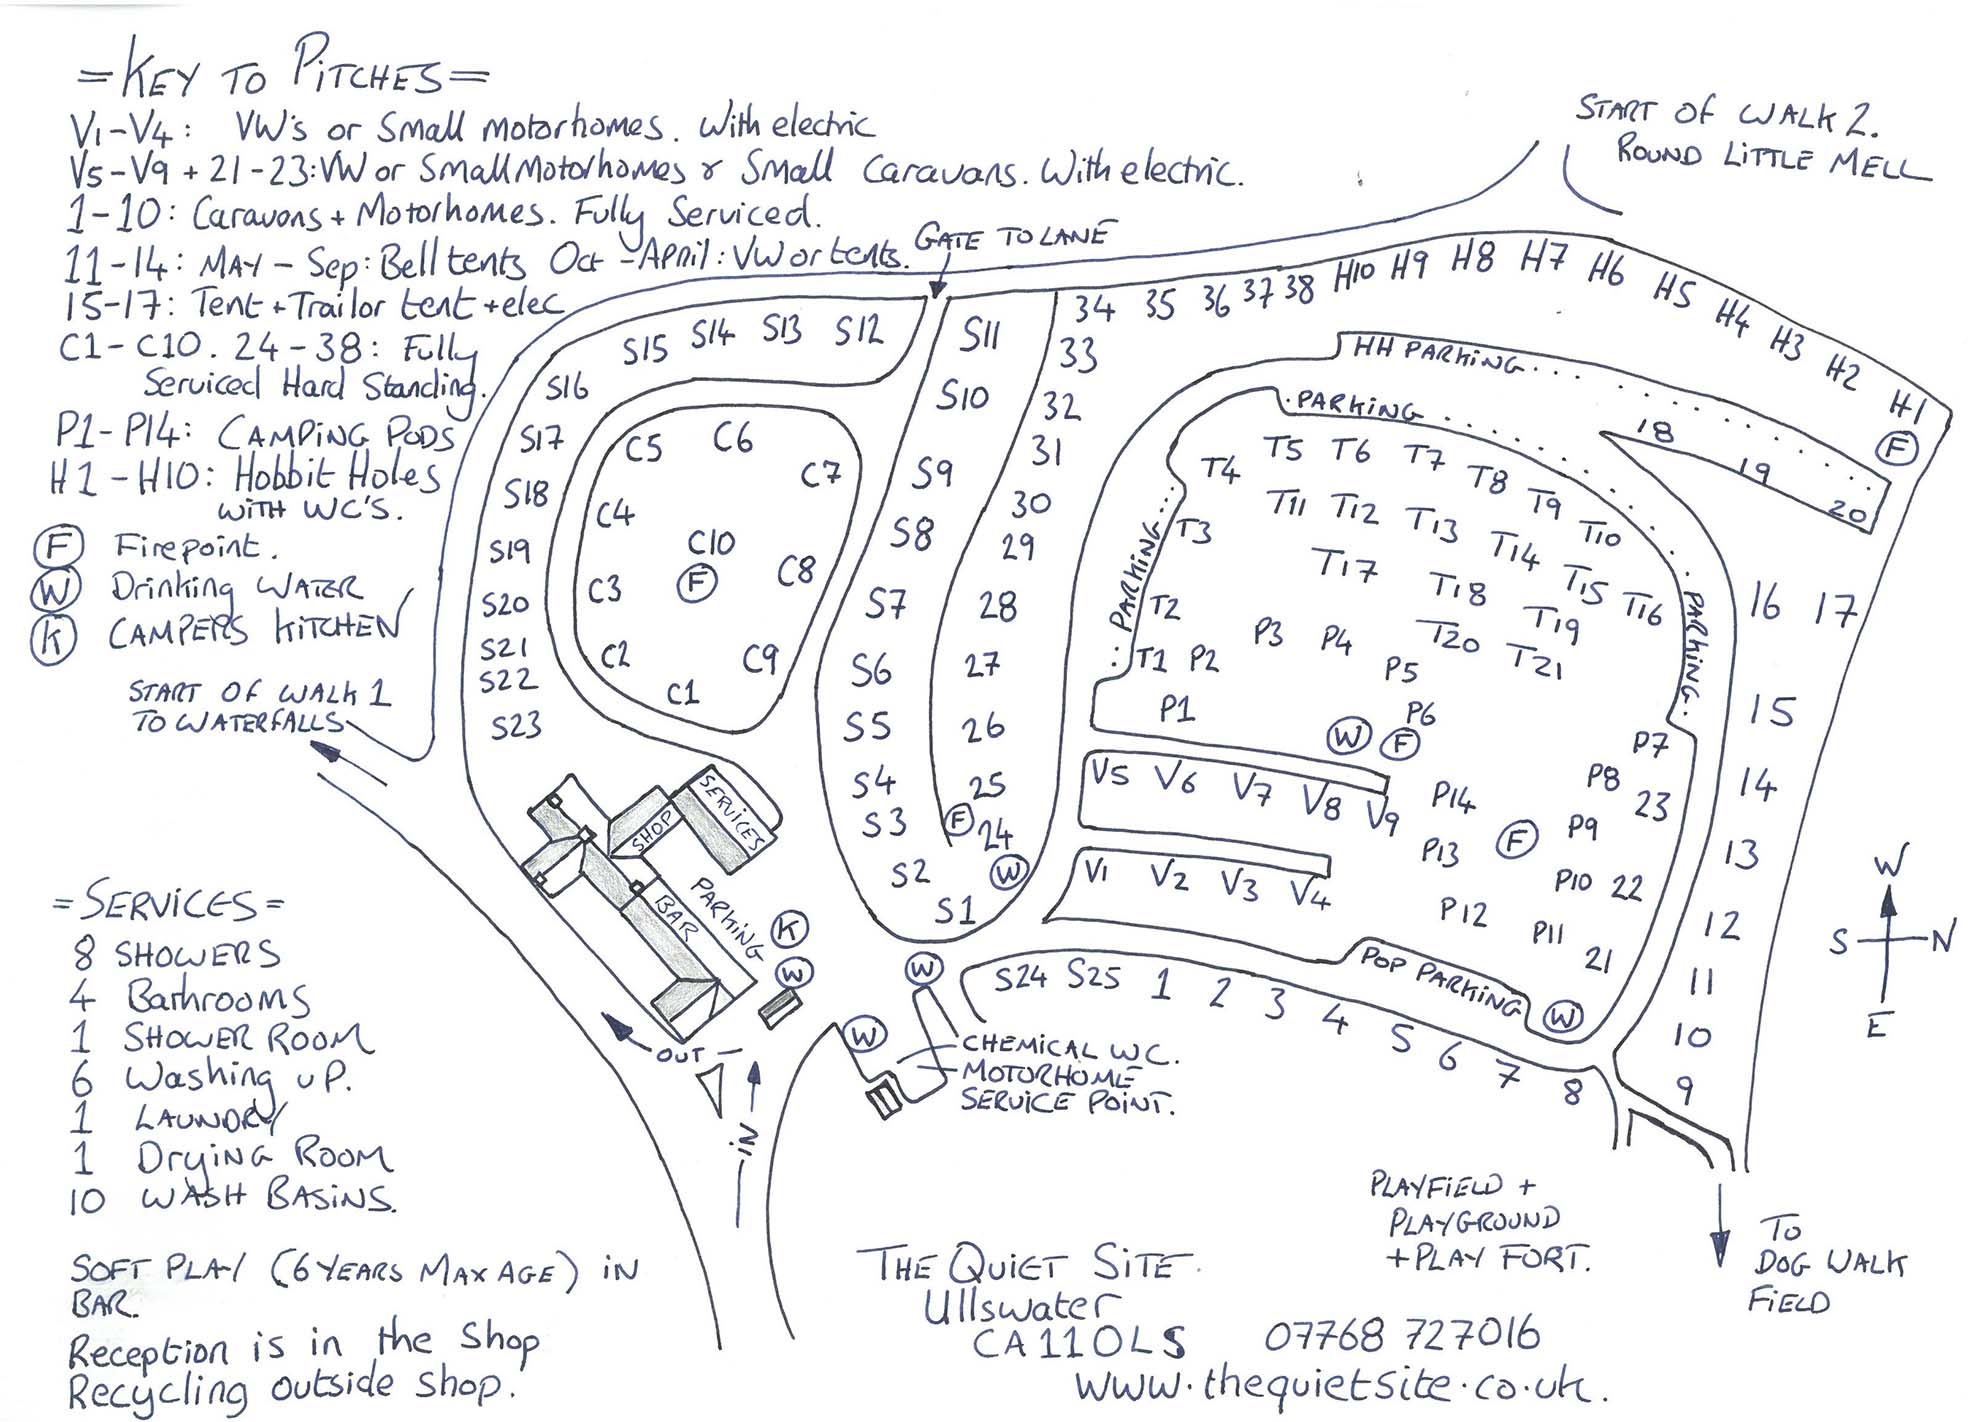 =KEY TO PITCHES=
V1-V4: VW's or Small motorhomes. With electric
V5-V9 + 21-23: VW or Small Motorhomes & Small Caravans. With electric.
1-10: Caravans + Motorhomes. Fully Serviced.
11-14: MAY - Sep: Bell tents Oct - April: VW or tents.
15-17: Tent + Trailor tent + elec
C1-C10. 24-38: Fully
Serviced Hard Standing.
P1-P14: CAMPING PODS
H1-H10: Hobbit Holes
WITH WC'S.
F Firepoint.
W Drinking WATER
K CAMPERS KITCHEN
START OF WALK 1
TO WATERFALLS
START OF WALK 2.
ROUND LITTLE MELL
GATE TO LANE
S15 S14 S13 S12
S16
S17
S18
S19
S20
S21
S22
S23
C5 C6
C7
C4
C10
F
C8
C3
C2
C9
C1
S11
S10
S9
S8
S7
S6
S5
S4
S3
S2
S1
34 35 36 37 38 H10 H9 H8 H7 H6 H5 H4 H3 H2 H1
F
33
32
31
30
29
28
27
26
25
F 24
W
HH PARKING
PARKING
18
19
20
T4 T5 T6 T7 T8 T9 T10
T11 T12 T13 T14 T15 T16
T3
T17 T18 T19
T2
T20 T21
PARKING
T1 P2 P3 P4 P5
P1
P6
W F
P7
PARKING
16 17
15
14
13
12
11
10
9
V5 V6 V7 V8 V9
P14
P8
23
P9
F
P13
V1 V2 V3 V4
P10 22
P12
P11
21
POP PARKING
W
S24 S25 1 2 3 4 5 6 7 8
SERVICES
SHOP
BAR
PARKING
K
W
W
W
OUT
IN
CHEMICAL WC.
MOTORHOME
SERVICE POINT.
W
S N
E
=SERVICES=
8 SHOWERS
4 Bathrooms
1 SHOWER ROOM
6 Washing UP.
1 LAUNDRY
1 Drying ROOM
10 WASH BASINS.
SOFT PLAY (6 YEARS MAX AGE) IN
BAR.
Reception is in the Shop
Recycling outside shop.
PLAYFIELD +
PLAYGROUND
+ PLAY FORT.
TO
DOG WALK
FIELD
THE QUIET SITE.
Ullswater
CA11 0LS 07768 727016
www.thequietsite.co.uk.